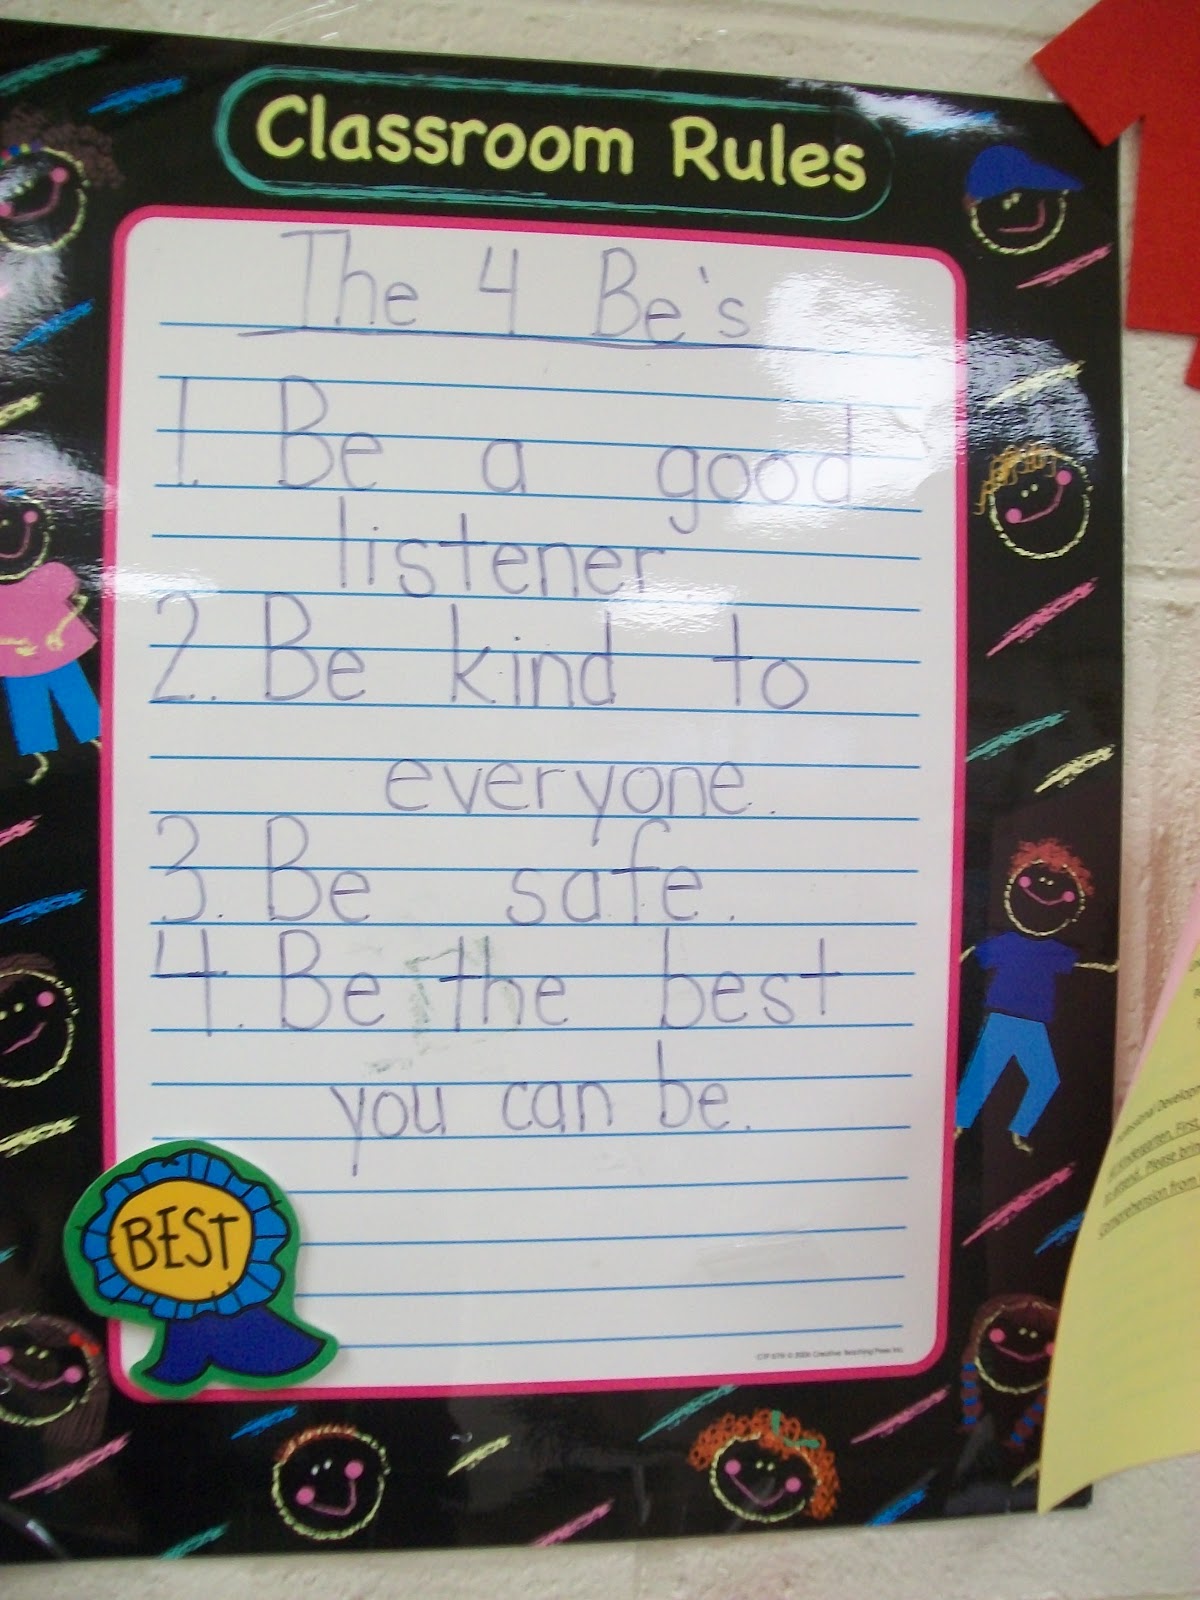 Classroom Rules
The 4 Be's
1. Be a good
listener.
2. Be kind to
everyone.
3. Be safe.
4. Be the best
you can be.
BEST
© 2006 Creative Teaching Press Inc.
Professional Develop
Kindergarten, First,
to attend. Please brin
Comprehension from